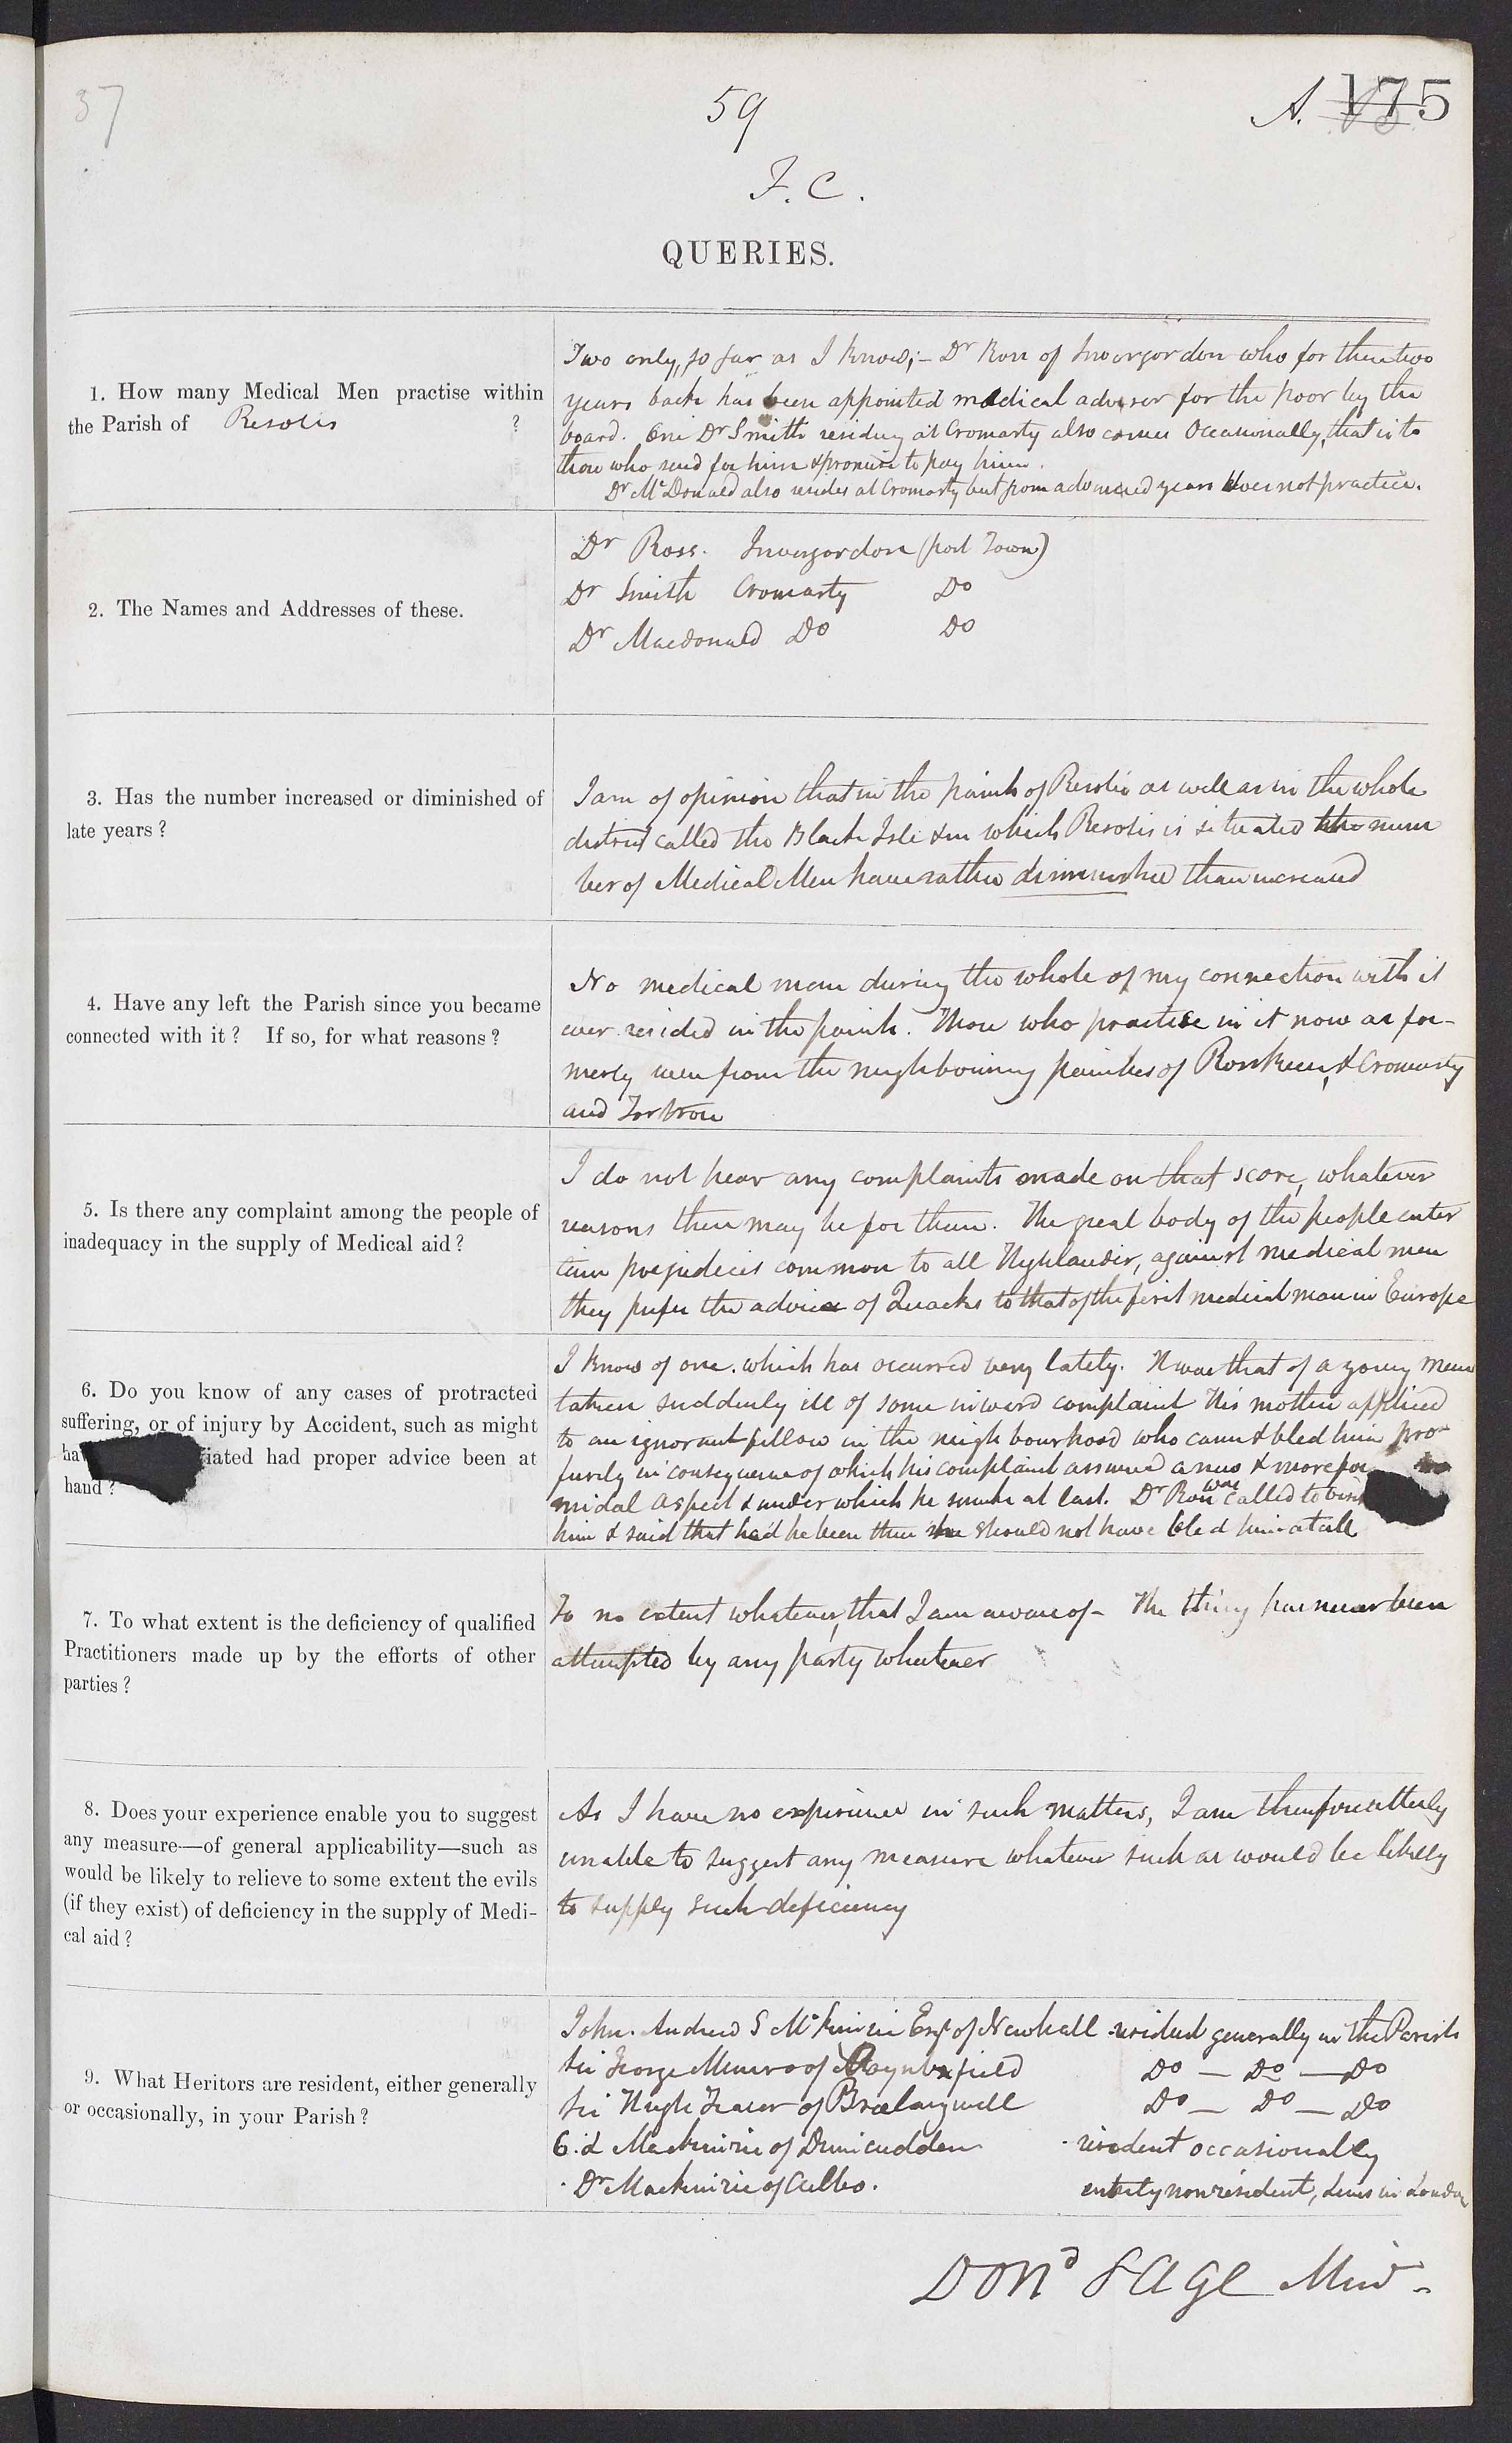 37
59
A. 175
F. C.
QUERIES.
1. How many Medical Men practise within
the Parish of Resolis ?
Two only, so far as I know;– Dr Ross of Invergordon who for these two
years back has been appointed medical adviser for the poor by the
board. One Dr Smith residing at Cromarty also comes Occasionally, that is to
those who send for him & promise to pay him.
Dr McDonald also resides at Cromarty but from advanced years does not practice.
2. The Names and Addresses of these.
Dr Ross. Invergordon (post Town)
Dr Smith Cromarty Do
Dr Macdonald Do Do
3. Has the number increased or diminished of
late years ?
I am of opinion that in the parish of Resolis as well as in the whole
district called the Black Isle & in which Resolis is situated the num
ber of Medical Men have rather diminished than increased
4. Have any left the Parish since you became
connected with it ? If so, for what reasons ?
No medical man during the whole of my connection with it
ever resided in the parish. Those who practise in it now as for-
merly were from the neighbouring parishes of Rosskeen, & Cromarty
and Fortrose
5. Is there any complaint among the people of
inadequacy in the supply of Medical aid ?
I do not hear any complaints made on that score, whatever
reasons there may be for them. The great body of the people enter
tain prejudices common to all Highlanders, against medical men
they prefer the advice of Quacks to that of the first medical man in Europe
6. Do you know of any cases of protracted
suffering, or of injury by Accident, such as might
ha iated had proper advice been at
hand ?
I know of one which has occurred very lately. It was that of a young man
taken suddenly ill of some inward complaint His mother applied
to an ignorant fellow in the neighbourhood who came & bled him pro-
fusely in consequence of which his complaint assumed a new & more for
midal aspect & under which he sunk at last. Dr Ross was called to visit
him & said that had he been there he should not have bled him at all
7. To what extent is the deficiency of qualified
Practitioners made up by the efforts of other
parties ?
To no extent whatever, that I am aware of – The thing has never been
attempted by any party whatever
8. Does your experience enable you to suggest
any measure—of general applicability—such as
would be likely to relieve to some extent the evils
(if they exist) of deficiency in the supply of Medi-
cal aid ?
As I have no experience in such matters, I am therefore utterly
unable to suggest any measure whatever such as would be likely
to supply such deficiency
9. What Heritors are resident, either generally
or occasionally, in your Parish ?
John. Andrew S McKenzie Esqr of Newhall resident generally in the Parish
Sir George Munro of Poyntzfield Do – Do – Do
Sir Hugh Fraser of Braelangwell Do – Do – Do
Mackenzie of Drumcudden resident occasionally
Dr Mackenzie of Culbo. entirely nonresident, lives in London
Dond Sage Minr –